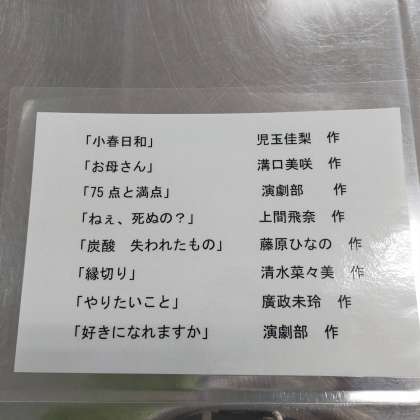 「小春日和」 児玉佳梨 作
「お母さん」 溝口美咲 作
「75点と満点」 演劇部 作
「ねぇ、死ぬの？」 上間飛奈 作
「炭酸 失われたもの」 藤原ひなの 作
「縁切り」 清水菜々美 作
「やりたいこと」 廣政未玲 作
「好きになれますか」 演劇部 作